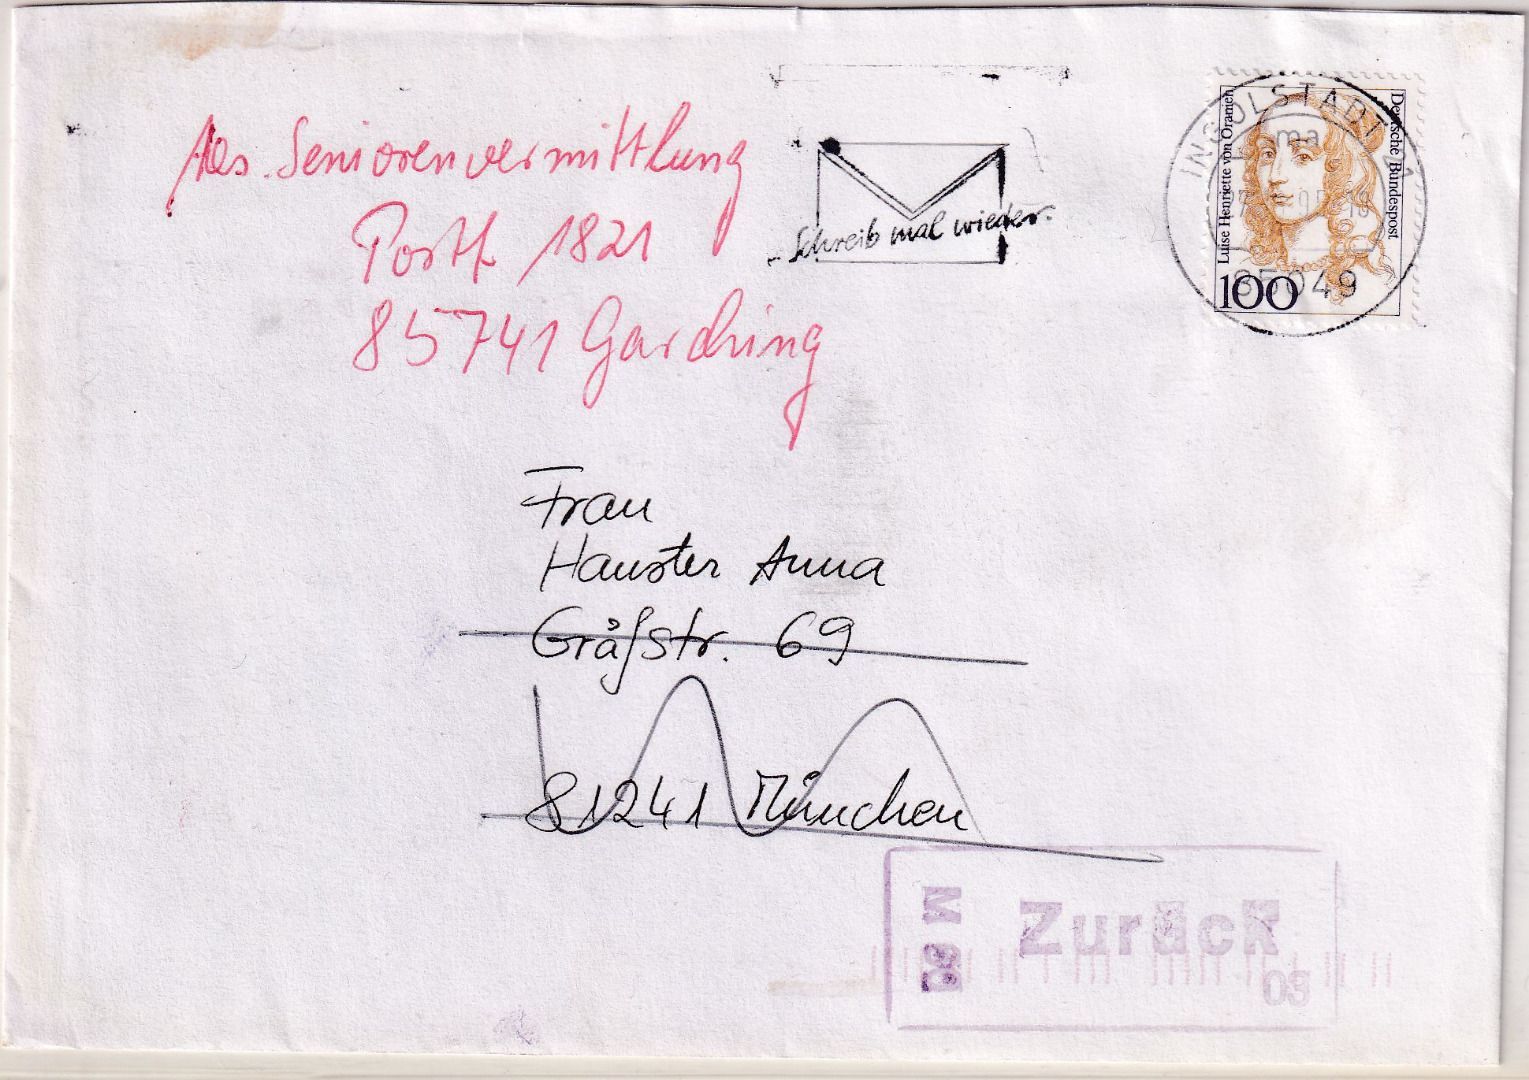 Abs. Seniorenvermittlung
Postf. 1821
85741 Garching
Schreib mal wieder.
INGOLSTADT 1
ma
85049
Luise Henriette von Oranien
Deutsche Bundespost
100
Frau
Hauster Anna
Gräfstr. 69
81241 München
Zurück
03